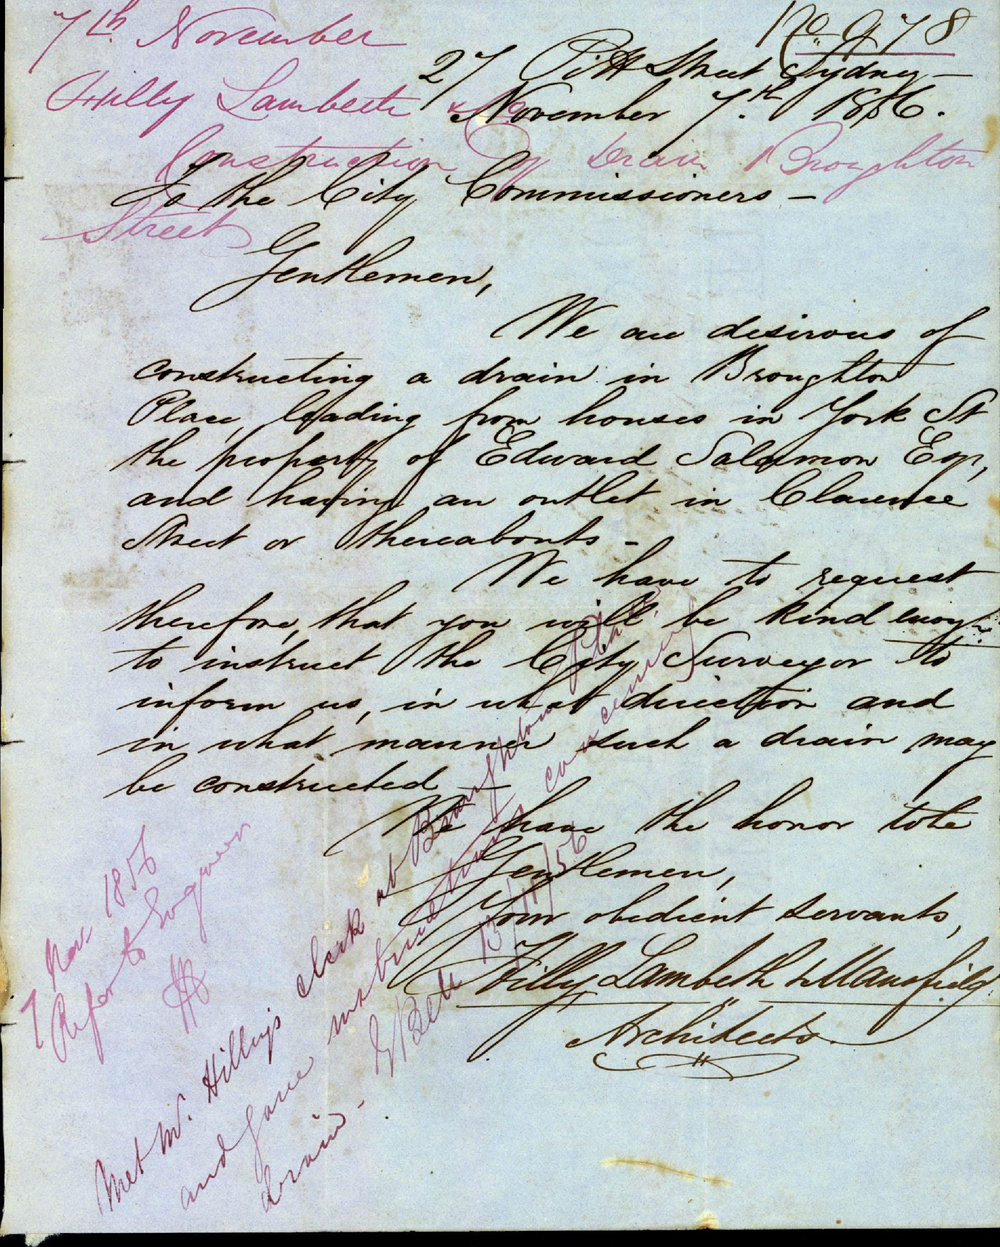 No. 978
7th. November
27 Pitt Street Sydney –
Hilly Lambeth & Co
November 7th. 1856.
Construction of Drain Broughton
To the City Commissioners –
Street
Gentlemen,
We are desirous of
constructing a drain in Broughton
Place, leading from houses in York St
the property of Edward Salamon Esqr,
and having an outlet in Clarence
Street or thereabouts –
We have to request
therefore, that you will be kind enough
to instruct the City Surveyor to
inform us, in what direction and
in what manner such a drain may
be constructed –
We have the honor to be
Gentlemen,
Your obedient servants,
Hilly Lambeth & Mansfield
Architects.
7 Nov 1856
Refer to Surveyor
Met Mr. Hilly's clerk at Broughton Place
and gave instructions concerning
drain –
E Bell 13/11/56